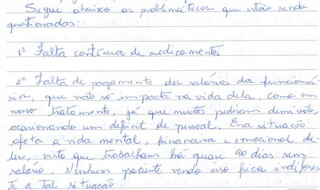 Segue abaixo as problemáticas que estão sendo
questionadas:
1º Falta contínua de medicamentos
2º Falta de pagamento dos salários das funcioná-
rias, que não só impacta na vida delas, como em
nosso tratamento, já que muitas pediram demissão,
ocasionando um déficit de pessoal. Essa situação
afeta a vida mental, financeira e emocional de-
les, visto que trabalham há quase 90 dias sem
salário. Nenhum paciente sendo isso fica indiferen-
te a tal situação.